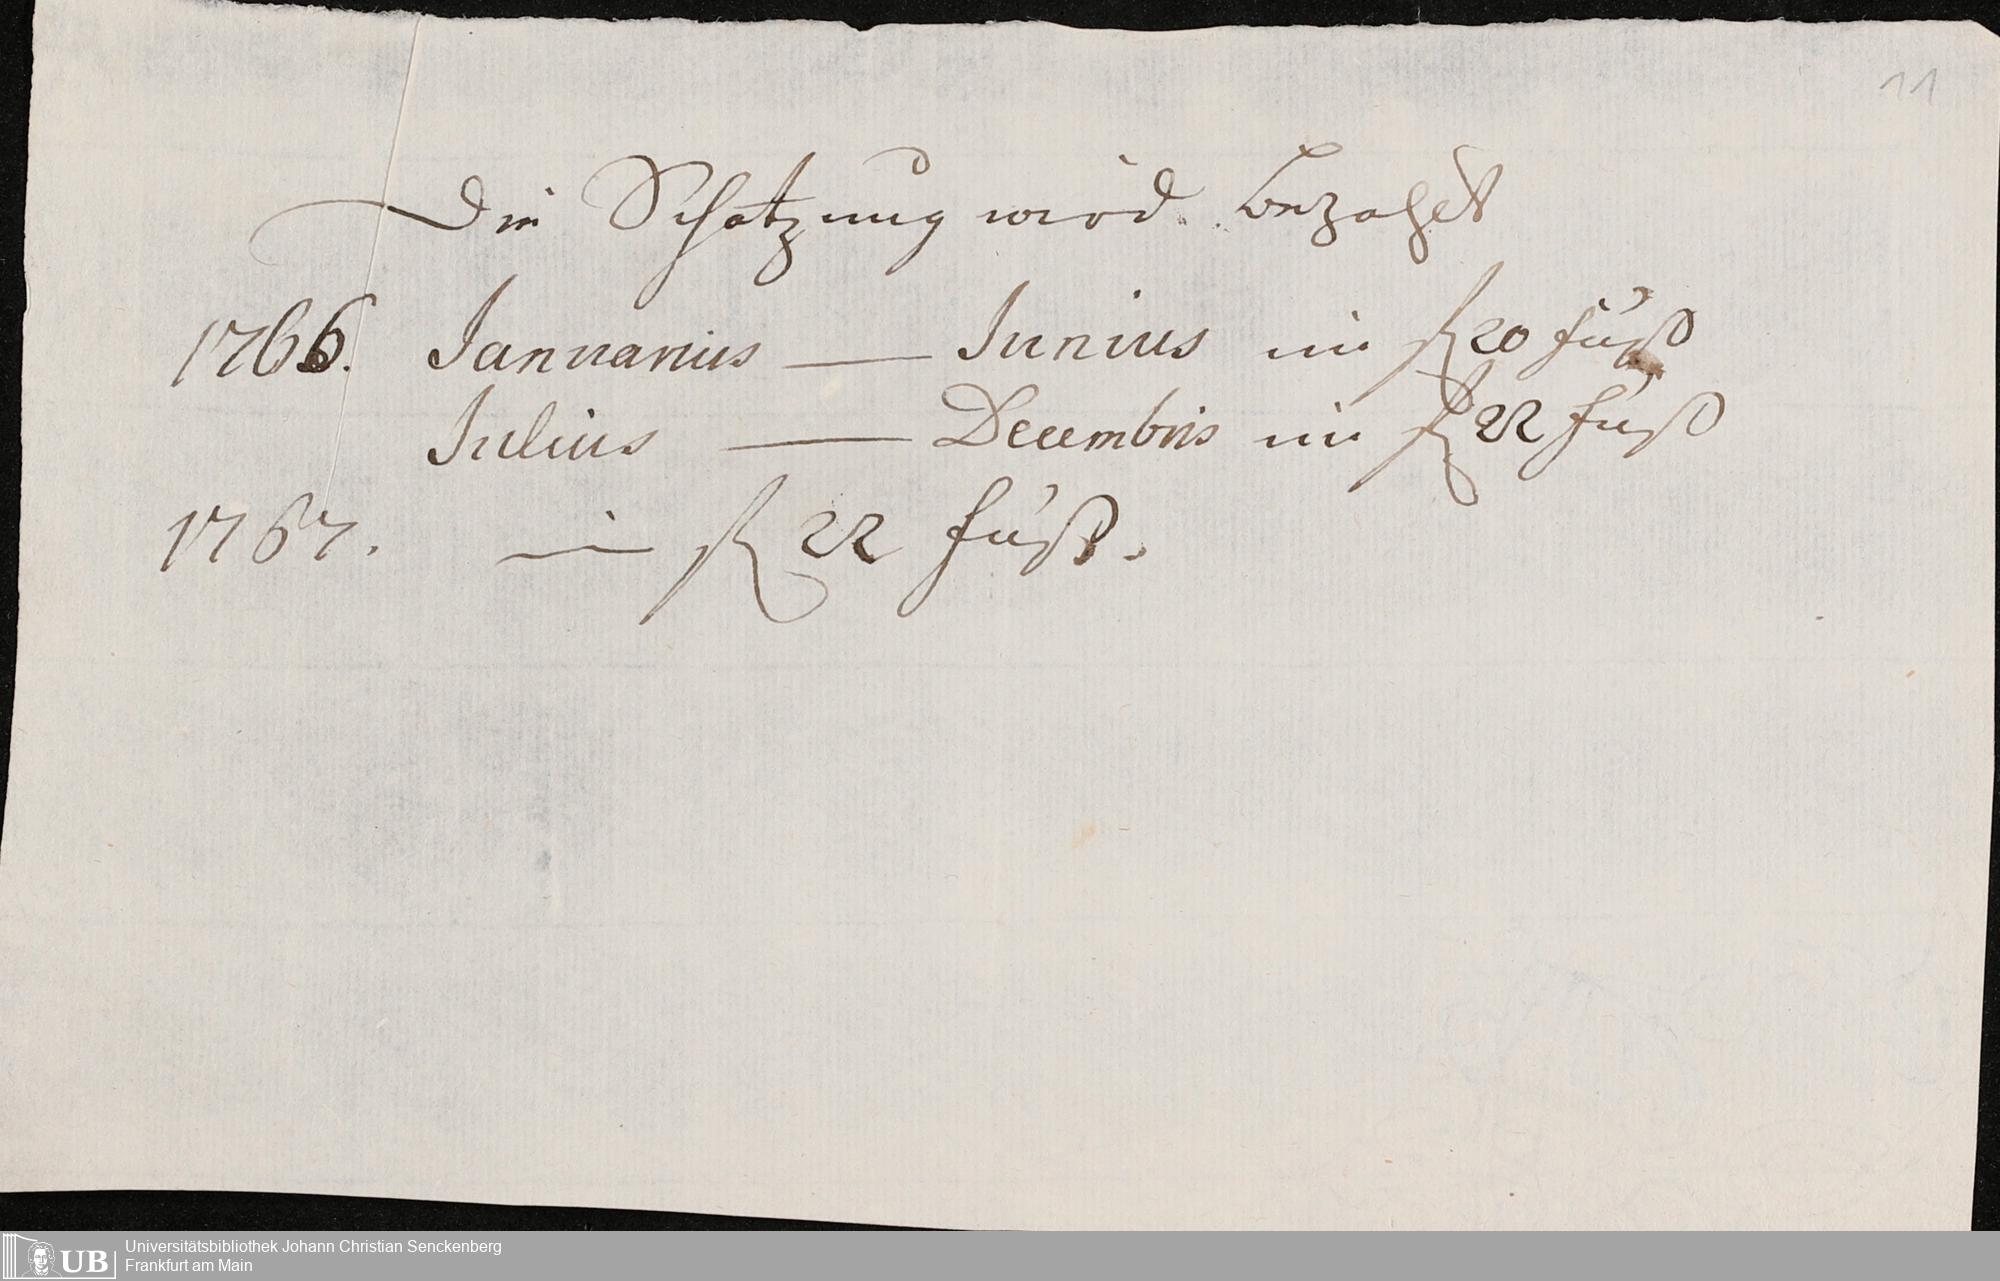 11
Die Schatzung wird bezahlt
1766. Januarius — Junius im fl 20 fuß
Julius — Decembris im fl 22 fuß
1767. — im fl 22 fuß.
UB
Universitätsbibliothek Johann Christian Senckenberg
Frankfurt am Main